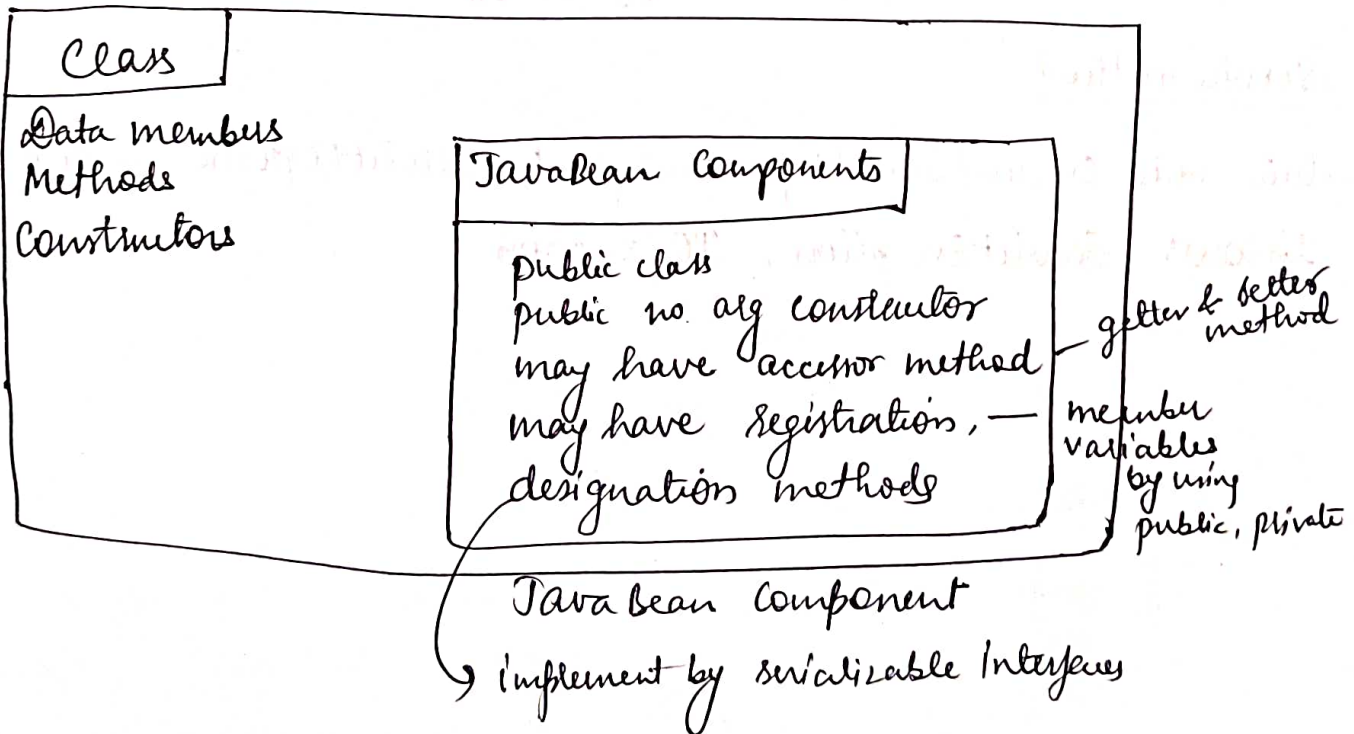 Class
Data members
Methods
Constructors
JavaBean Components
public class
public no. arg constructor
may have accessor method
getter & setter
method
may have registration,
member
variables
by using
public, private
designation methods
JavaBean Component
implement by serializable Interfaces